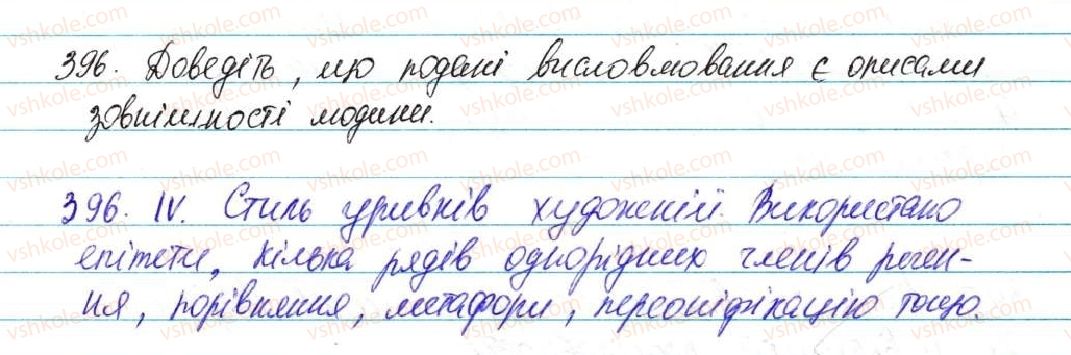 396. Доведіть, що подані висловлювання є описами
зовнішності людини.
396. IV. Стиль уривків художній. Використано
епітети, кілька рядів однорідних членів речен-
ня, порівняння, метафори, персоніфікацію тощо.